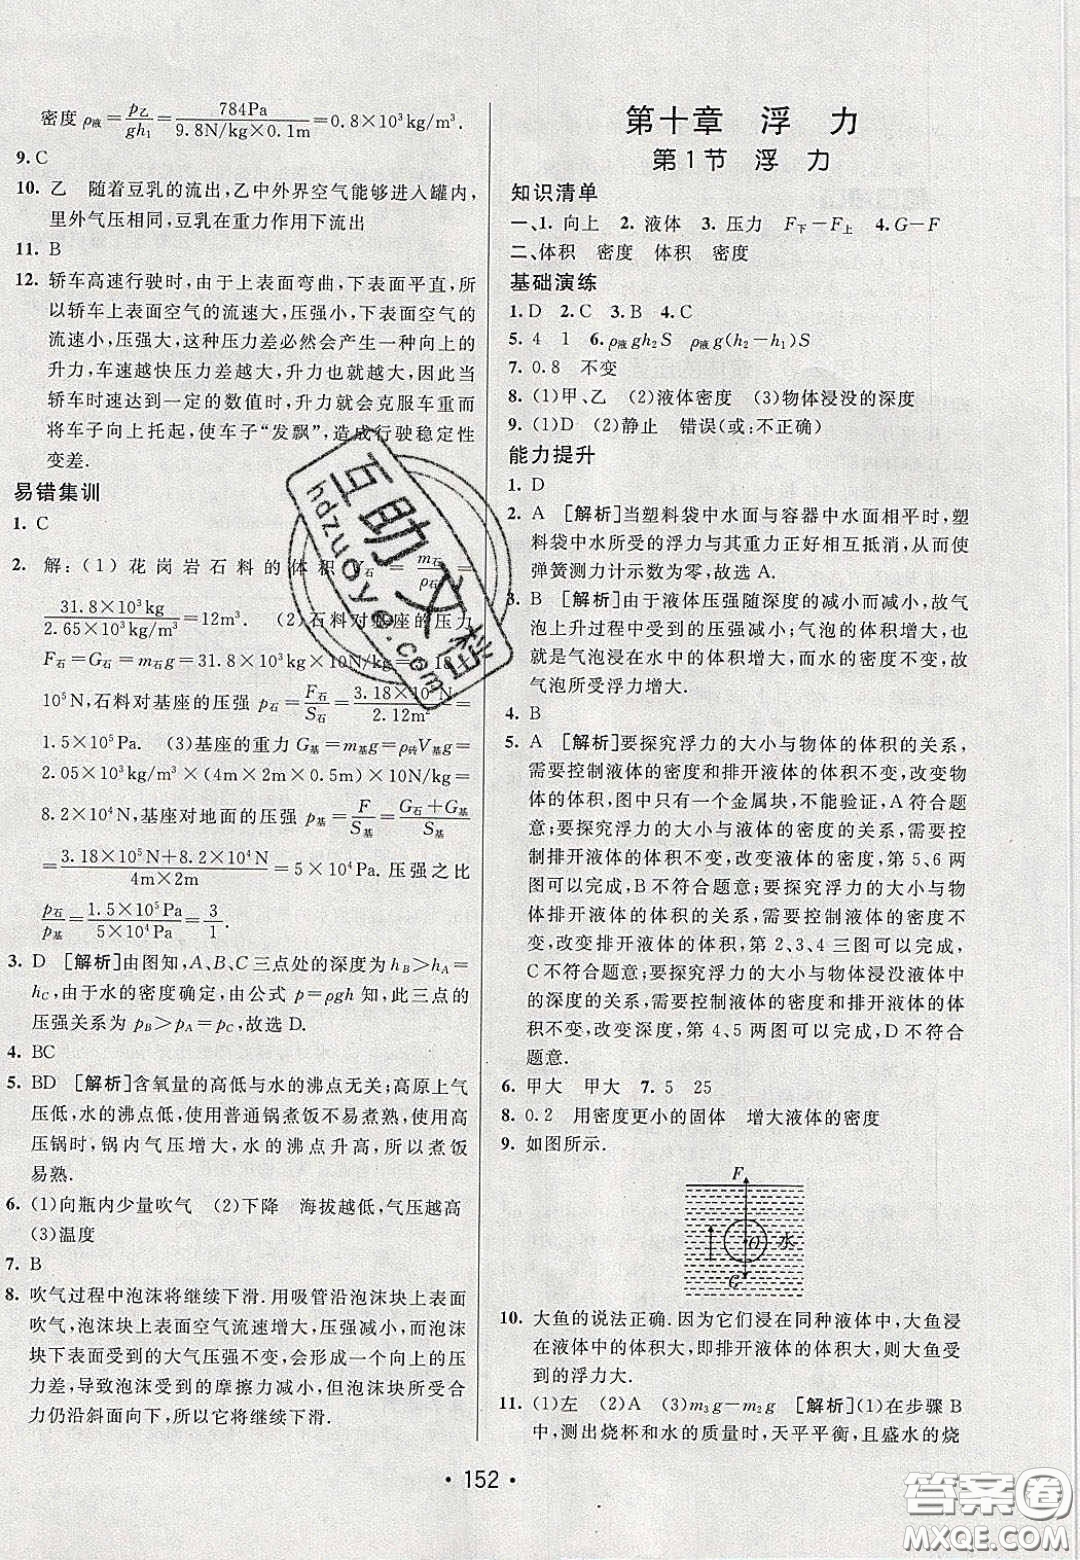 密度 ρ液=p乙/gh₁=784Pa/9.8N/kg×0.1m=0.8×10³kg/m³.
9. C
10. 乙　随着豆乳的流出，乙中外界空气能够进入罐内，
里外气压相同，豆乳在重力作用下流出
11. B
12. 轿车高速行驶时，由于上表面弯曲，下表面平直，所
以轿车上表面空气的流速大，压强小，下表面空气的
流速小，压强大，这种压力差必然会产生一种向上的
升力，车速越快压力差越大，升力也就越大，因此当
轿车时速达到一定的数值时，升力就会克服车重而
将车子向上托起，使车子“发飘”，造成行驶稳定性
变差.
易错集训
1. C
2. 解：(1)花岗岩石料的体积V石=m石/ρ石=
31.8×10³kg/2.65×10³kg/m³=12m³.　(2)石料对基座的压力
F石=G石=m石g=31.8×10³kg×10N/kg=3.18×
10⁵N，石料对基座的压强 p石=F石/S石=3.18×10⁵N/2.12m²=
1.5×10⁵Pa.　(3)基座的重力G基=m基g=ρ砖V基g=
2.05×10³kg/m³×(4m×2m×0.5m)×10N/kg=
8.2×10⁴N，基座对地面的压强 p基=F/S基=G石+G基/S基
=3.18×10⁵N+8.2×10⁴N/4m×2m=5×10⁴Pa.压强之比
p石/p基=1.5×10⁵Pa/5×10⁴Pa=3/1.
3. D　[解析]由图知，A、B、C三点处的深度为h_B>h_A=
h_C，由于水的密度确定，由公式 p=ρgh 知，此三点的
压强关系为p_B>p_A=p_C，故选D.
4. BC
5. BD　[解析]含氧量的高低与水的沸点无关；高原上气
压低，水的沸点低，使用普通锅煮饭不易煮熟，使用高
压锅时，锅内气压增大，水的沸点升高，所以煮饭
易熟.
6. (1)向瓶内少量吹气　(2)下降　海拔越低，气压越高
(3)温度
7. B
8. 吹气过程中泡沫将继续下滑.用吸管沿泡沫块上表面
吹气，泡沫块上表面空气流速增大，压强减小，而泡沫
块下表面受到的大气压强不变，会形成一个向上的压
力差，导致泡沫受到的摩擦力减小，泡沫块所受合
力仍沿斜面向下，所以它将继续下滑.
第十章　浮　力
第1节　浮　力
知识清单
一、1. 向上　2. 液体　3. 压力　F下−F上　4.G−F
二、体积　密度　体积　密度
基础演练
1. D　2.C　3. B　4.C
5. 4　1　6.ρ液gh₂S　ρ液g(h₂−h₁)S
7. 0.8　不变
8. (1)甲、乙　(2)液体密度　(3)物体浸没的深度
9. (1)D　(2)静止　错误(或：不正确)
能力提升
1. D
2. A　[解析]当塑料袋中水面与容器中水面相平时，塑
料袋中水所受的浮力与其重力正好相互抵消，从而使
弹簧测力计示数为零，故选A.
3. B　[解析]由于液体压强随深度的减小而减小，故气
泡上升过程中受到的压强减小；气泡的体积增大，也
就是气泡浸在水中的体积增大，而水的密度不变，故
气泡所受浮力增大.
4. B
5. A　[解析]要探究浮力的大小与物体的体积的关系，
需要控制液体的密度和排开液体的体积不变，改变物
体的体积，图中只有一个金属块，不能验证，A符合题
意；要探究浮力的大小与液体的密度的关系，需要控
制排开液体的体积不变，改变液体的密度，第5、6两
图可以完成，B不符合题意；要探究浮力的大小与物
体排开液体的体积的关系，需要控制液体的密度不
变，改变排开液体的体积，第2、3、4三图可以完成，
C不符合题意；要探究浮力的大小与物体浸没液体中
的深度的关系，需要控制液体的密度和排开液体的体
积不变，改变深度，第4、5两图可以完成，D不符合
题意.
6. 甲大　甲大　7. 5　25
8. 0.2　用密度更小的固体　增大液体的密度
9. 如图所示.
F
O 水
G
10. 大鱼的说法正确.因为它们浸在同种液体中，大鱼浸
在液体中的体积大，即排开液体的体积大，则大鱼受
到的浮力大.
11. (1)左　(2)A　(3)m₃g−m₂g　[解析](1)在步骤B
中，测出烧杯和水的质量时，天平平衡，且盛水的烧
• 152 •
互助文档
hdzuoye.com
答案圈
MXQE.COM